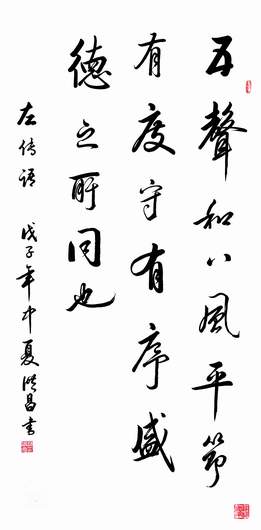 五聲和八風平節
有度守有序盛
德之所同也
左传语 戊子年中夏洪昌书